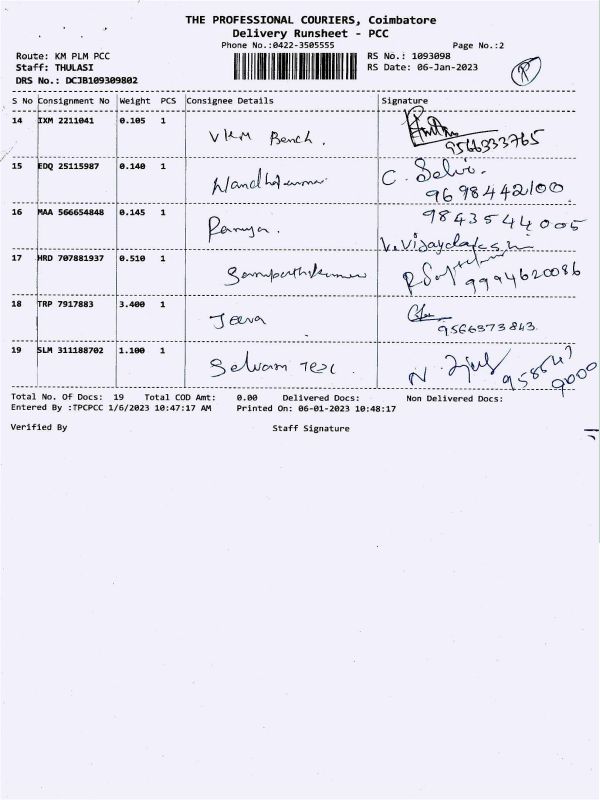 THE PROFESSIONAL COURIERS, Coimbatore
Delivery Runsheet - PCC
Phone No.:0422-3505555 Page No.:2
Route: KM PLM PCC RS No.: 1093098
Staff: THULASI RS Date: 06-Jan-2023
DRS No.: DCJB109309802
S No Consignment No Weight PCS Consignee Details Signature
14 IXM 2211041 0.105 1 VKM Bench. 9566333765
15 EDQ 25115987 0.140 1 C. Selvi. 9698442100
16 MAA 566654848 0.145 1 Ramya. 9843544005
V. Vijayalakshmi
17 HRD 707881937 0.510 1 9994620086
18 TRP 7917883 3.400 1 Jeeva 9566373843
19 SLM 311188702 1.100 1 Selvam Tex. N.
Total No. Of Docs: 19 Total COD Amt: 0.00 Delivered Docs: Non Delivered Docs:
Entered By :TPCPCC 1/6/2023 10:47:17 AM Printed On: 06-01-2023 10:48:17
Verified By Staff Signature